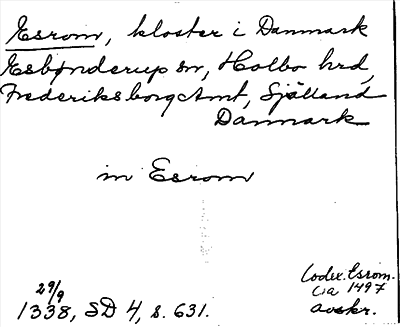 Esrom, kloster i Danmark
Esbønderup sn, Holbo hrd,
Frederiksborg Amt, Sjölland
Danmark
in Esrom
29/9
1338, SD 4, s. 631.
Codex. Esrom.
ca 1497
avskr.